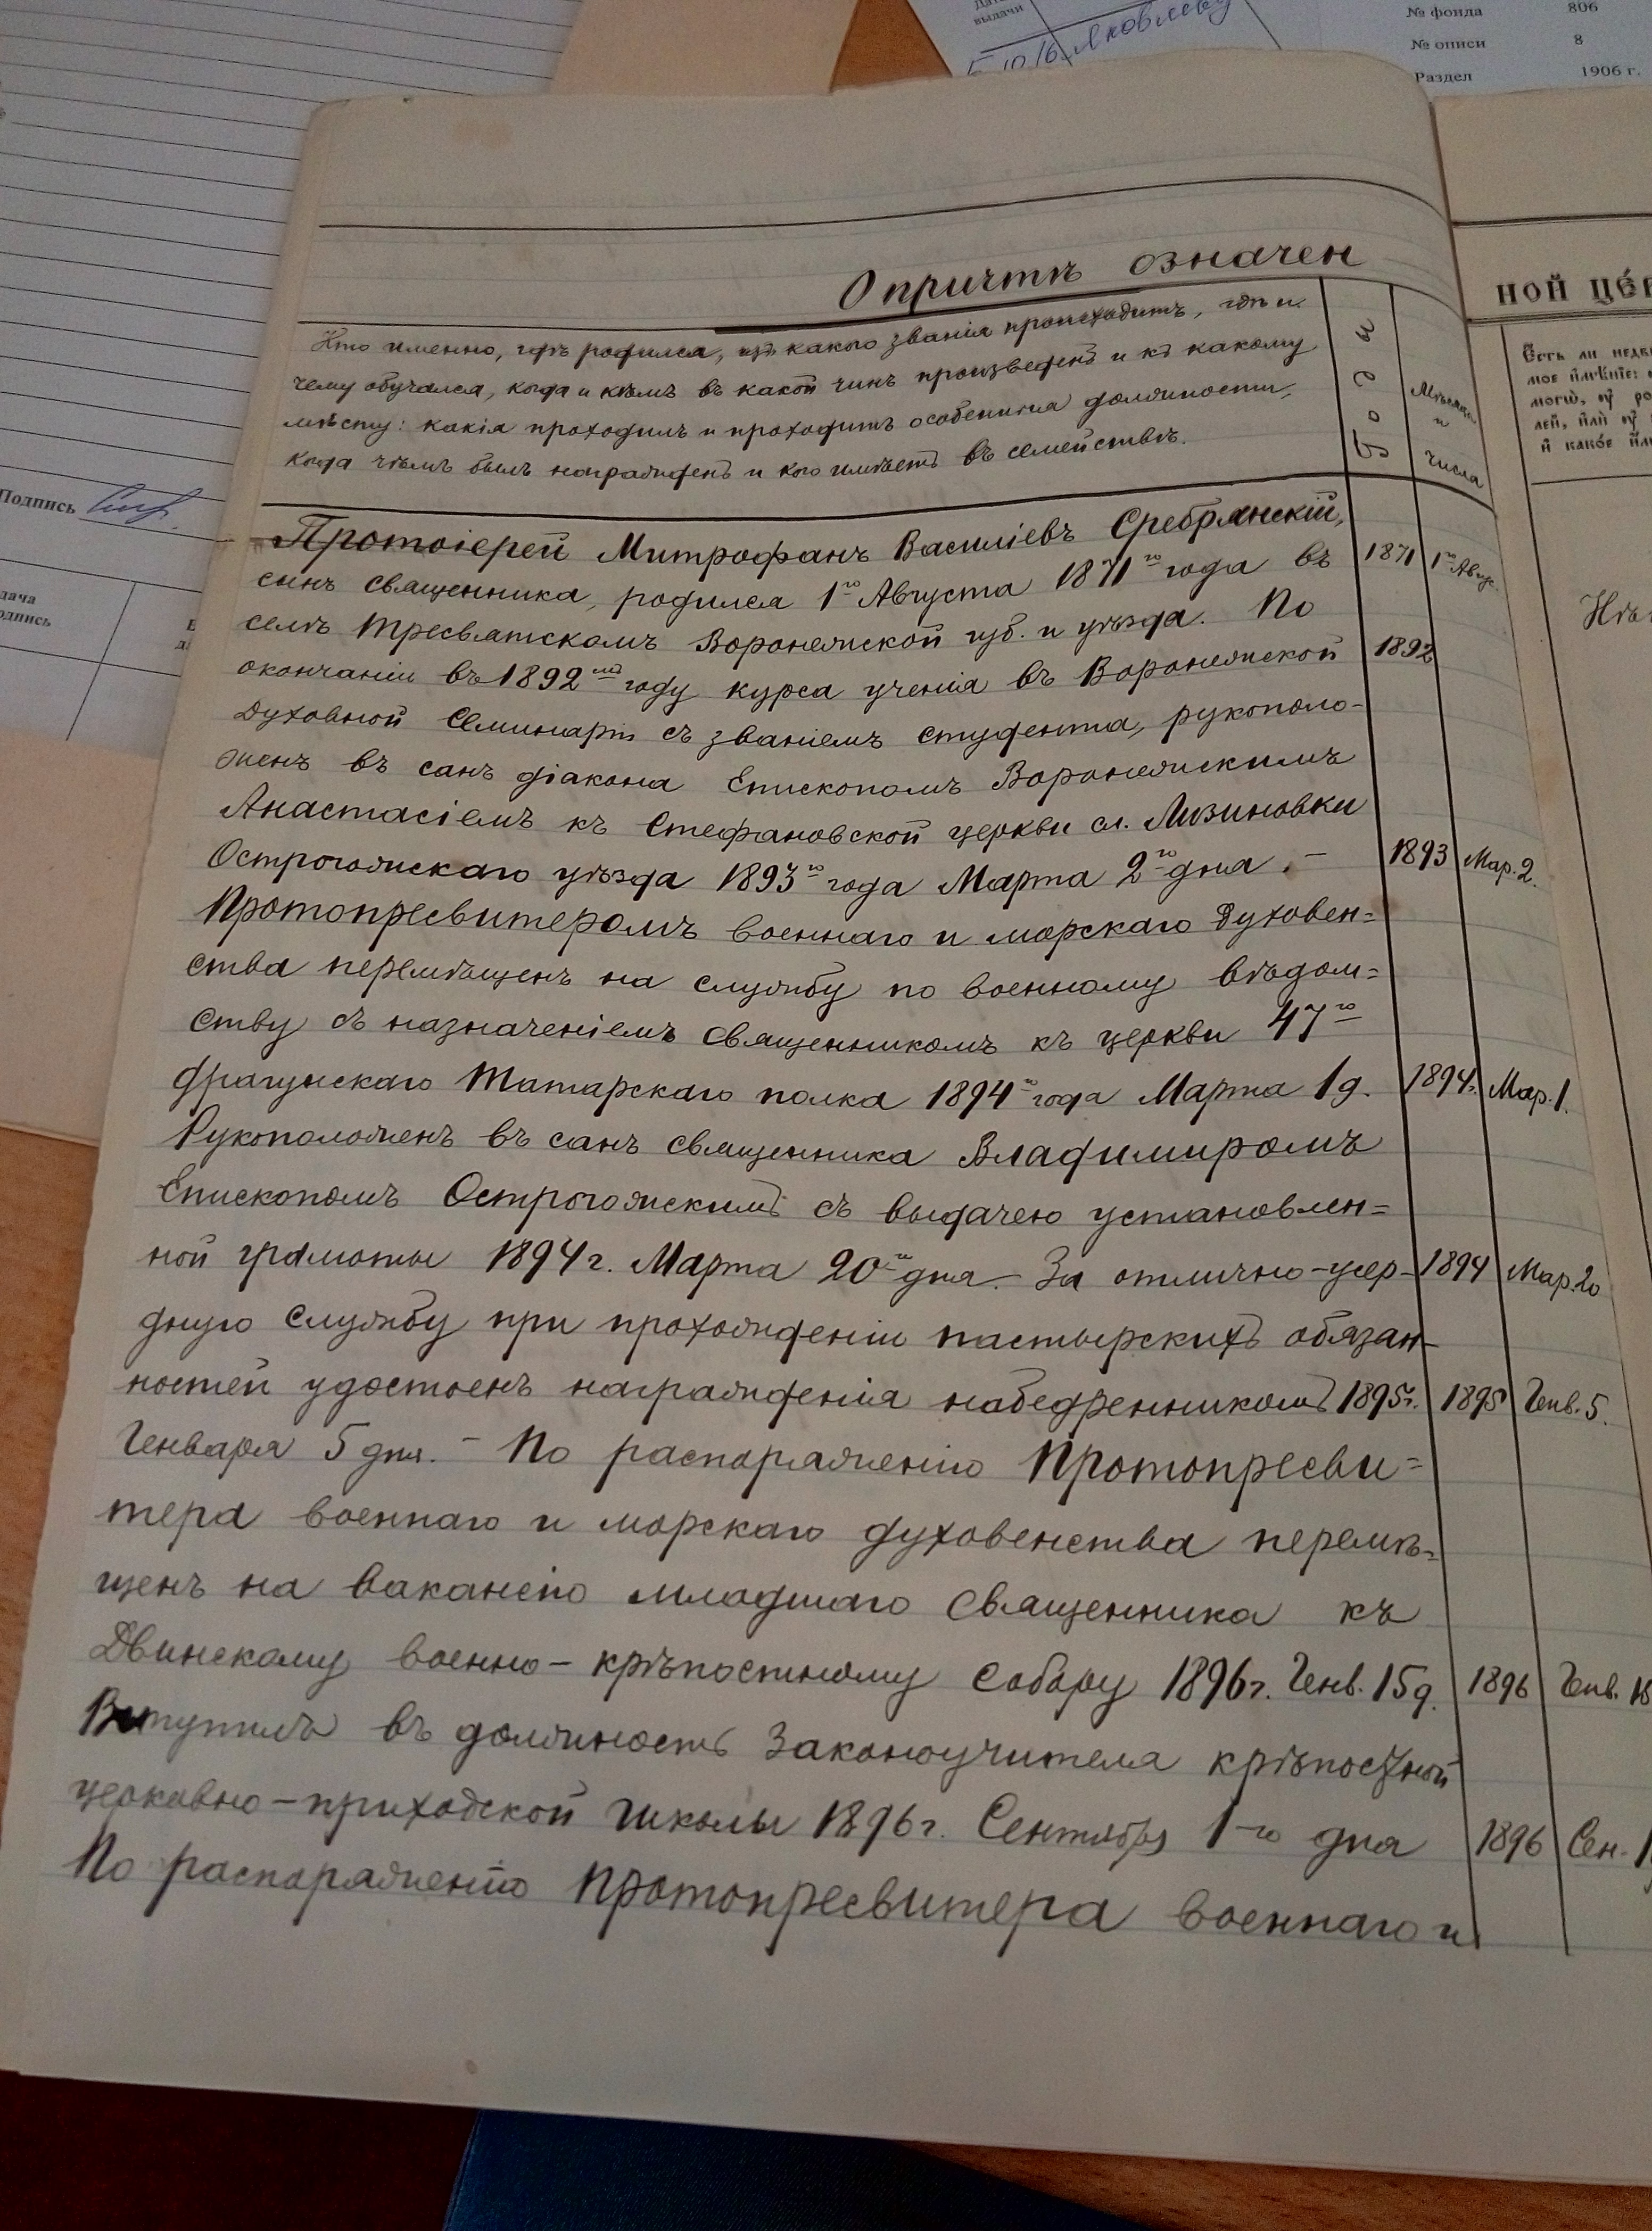 выдачи
Яковлеву
№ фонда 806
№ описи 8
Раздел 1906 г.
Подпись
О причтѣ означен
ной це́р
Кто именно, гдѣ родился, изъ какого званія происходитъ, гдѣ и
чему обучался, когда и кѣмъ въ какой чинъ произведенъ и къ какому
мѣсту: какія проходилъ и проходитъ особенныя должности,
когда чѣмъ былъ награжденъ и кого имѣетъ въ семействѣ.
Года
Мѣсяцы
и
числа
Протоіерей Митрофанъ Василіевъ Сребрянскій,
сынъ священника, родился 1го Августа 1871го года въ 1871 1го Авгус.
селѣ Тресвятскомъ Воронежской губ. и уѣзда. По
окончаніи въ 1892мъ году курса ученія въ Воронежской 1892
Духовной Семинаріи съ званіемъ студента, рукополо-
женъ въ санъ діакона Епископомъ Воронежскимъ
Анастасіемъ къ Стефановской церкви сл. Лизиновки
Острогожскаго уѣзда 1893го года Марта 2го дня. – 1893 Мар. 2.
Протопресвитеромъ военнаго и морскаго Духовен=
ства перемѣщенъ на службу по военному вѣдом=
ству съ назначеніемъ священникомъ къ церкви 47го
драгунскаго Татарскаго полка 1894го года Марта 1 д. 1894г. Мар. 1.
Рукоположенъ въ санъ священника Владимиромъ
Епископомъ Острогожскимъ съ выдачею установлен=
ной грамоты 1894 г. Марта 20го дня – За отлично-усер- 1894 Мар. 20
дную службу при прохожденіи пастырскихъ обязан-
ностей удостоенъ награжденія набедренникомъ 1895г. 1895 Генв. 5.
Генваря 5 дня. – По распоряженію Протопресви=
тера военнаго и морскаго духовенства перемѣ=
щенъ на вакансію младшаго священника къ
Двинскому военно-крѣпостному собору 1896 г. Генв. 15 д. 1896 Генв. 15
Вступилъ въ должность Законоучителя крѣпостной
церковно-приходской школы 1896 г. Сентября 1-го дня 1896 Сен. 1
По распоряженію Протопресвитера военнаго и